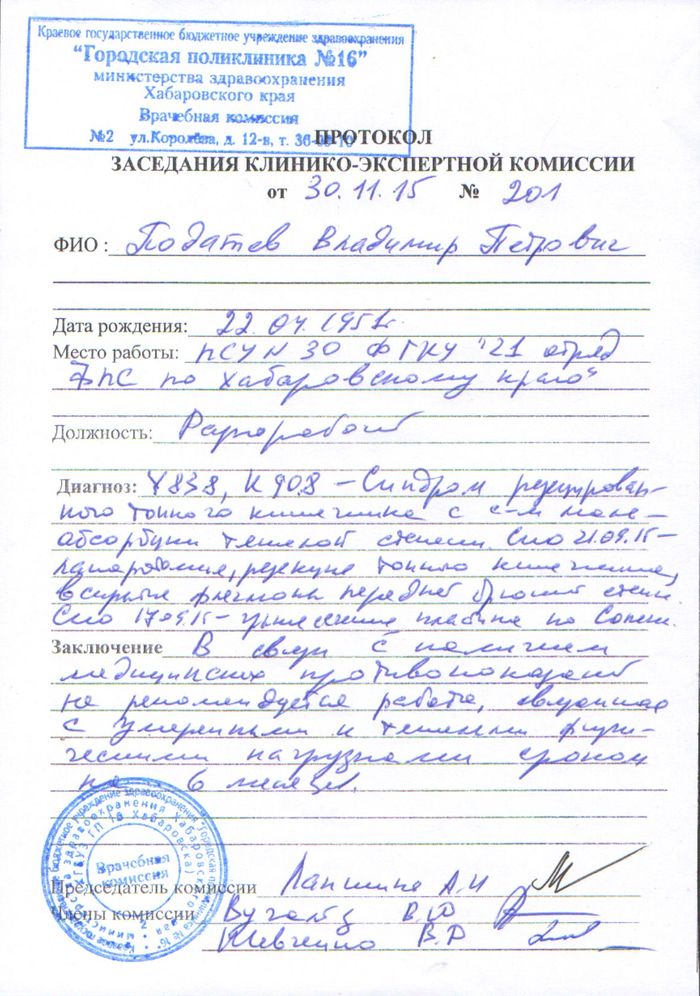 Краевое государственное бюджетное учреждение здравоохранения
"Городская поликлиника №16"
министерства здравоохранения
Хабаровского края
Врачебная комиссия
№2 ул.Королёва, д. 12-в, т.
ПРОТОКОЛ
ЗАСЕДАНИЯ КЛИНИКО-ЭКСПЕРТНОЙ КОМИССИИ
от 30.11.15 № 201
ФИО : Податев Владимир Петрович
Дата рождения: 22.04.1951г.
Место работы: ПСУ N 30 ФГКУ "21 отряд
ФПС по Хабаровскому краю"
Должность:
Диагноз: К 90.8 - Синдром резецирован-
ного тонкого кишечника с с-м маль-
абсорбции тяжелой степени. 21.09.15-
лапаротомия, резекция тонкого кишечника,
вскрытие флегмоны передней брюшной стенки
17.09.15-
Заключение В связи с наличием
медицинских противопоказаний
не рекомендуется работа, связанная
с умеренными и тяжелыми физи-
ческими нагрузками сроком
на 6 месяцев.
Врачебная
комиссия
Председатель комиссии Лапшина А.И
Члены комиссии В.Ю
Шевченко В.Р